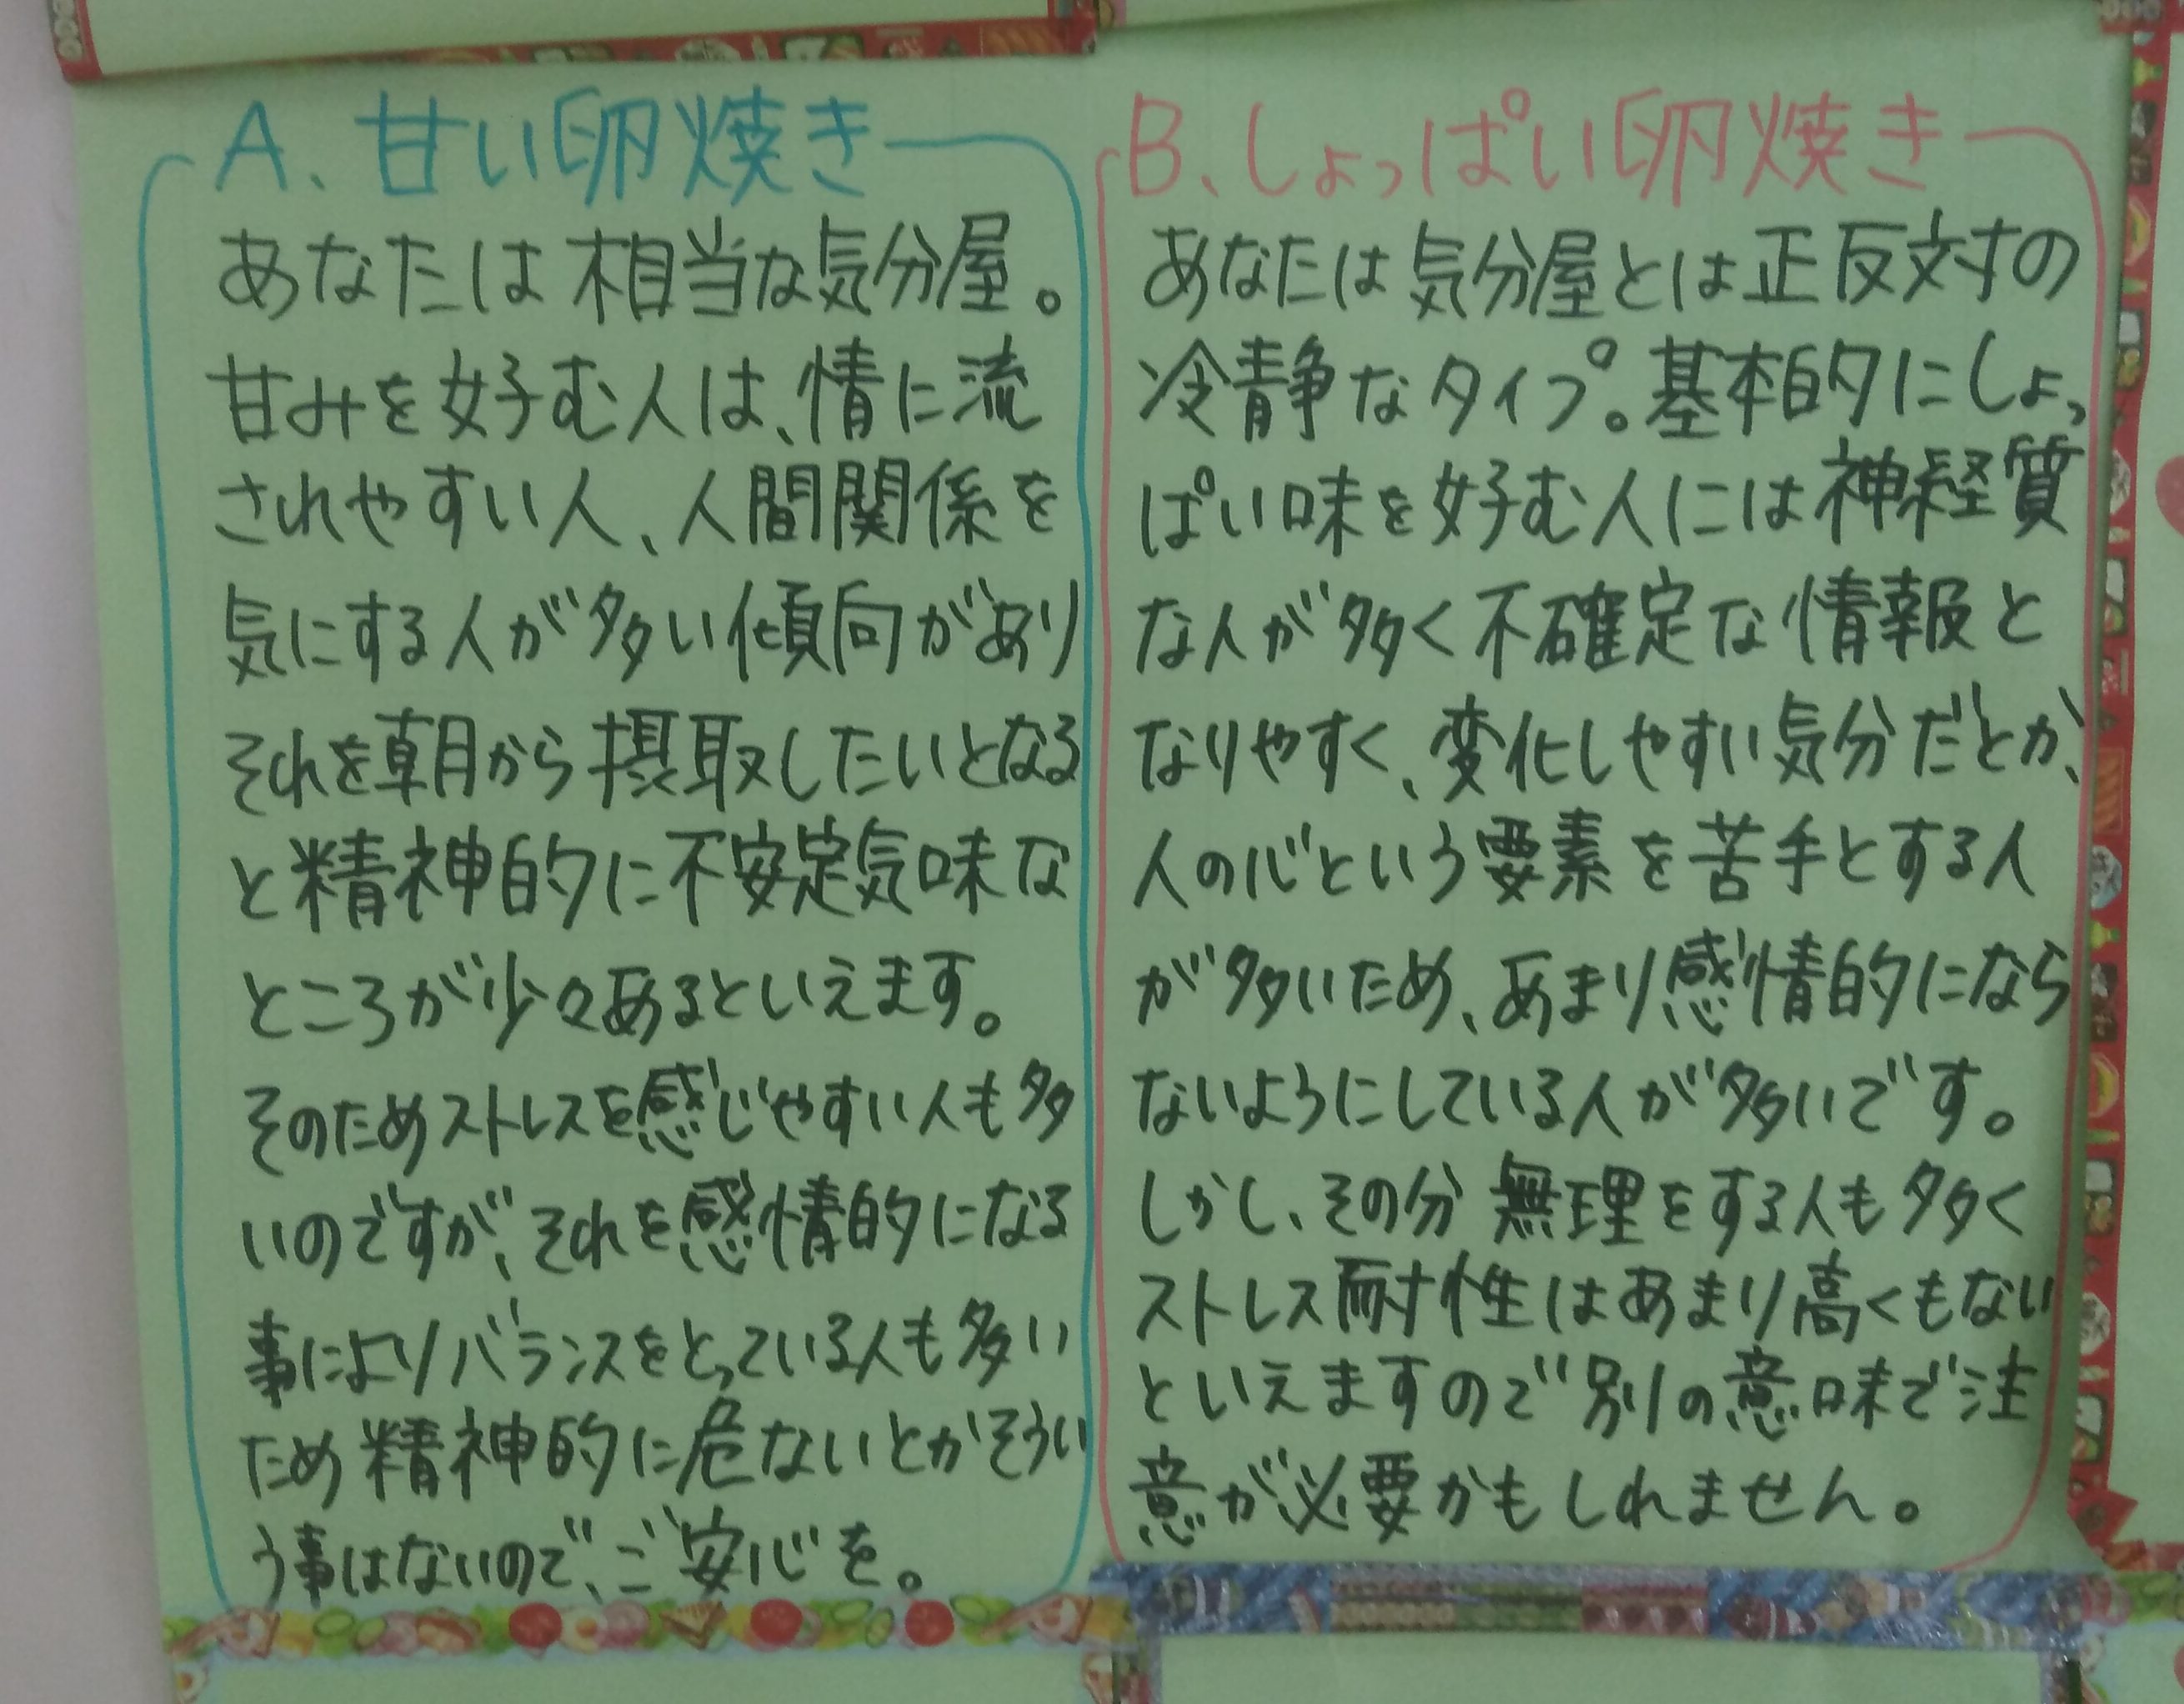 A、甘い卵焼き
あなたは相当な気分屋。
甘みを好む人は、情に流
されやすい人、人間関係を
気にする人が多い傾向があり
それを朝から摂取したいとなる
と精神的に不安定気味な
ところが少々あるといえます。
そのためストレスを感じやすい人も多
いのですが、それを感情的になる
事によりバランスをとっている人も多い
ため精神的に危ないとかそうい
う事はないので、ご安心を。
B、しょっぱい卵焼き
あなたは気分屋とは正反対の
冷静なタイプ。基本的にしょっ
ぱい味を好む人には神経質
な人が多く不確定な情報と
なりやすく、変化しやすい気分だとか、
人の心という要素を苦手とする人
が多いため、あまり感情的になら
ないようにしている人が多いです。
しかし、その分無理をする人も多く
ストレス耐性はあまり高くもない
といえますので別の意味で注
意が必要かもしれません。